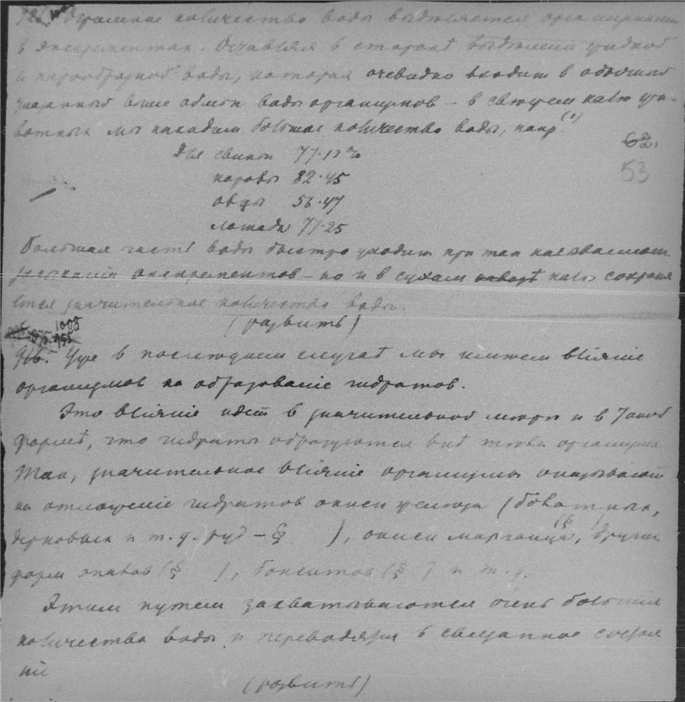 Огромное количество воды выделяется организмами
в экскрементах. Оставляя в стороне выделение жидкой
и парообразной воды, которая очевидно входит в обычный
указанный выше обмен воды организмов – в свежем кале жи-
вотных мы находим большое количество воды, напр. (1)
62.
53
Для свиньи 77.13%
коровы 82.45
овцы 56.47
лошади 77.25
Большая часть воды быстро уходит при так называемом
высыхании экскрементов – но и в сухом кале сохраня
ется значительное количество воды.
(развить)
1005
975. 955
976. Уже в последнем случае мы имеем вліяніе
организмов на образованіе гидратов.
Это вліяніе идет в значительной мере и в такой
форме, что гидраты образуются вне тела организма
Так, значительное вліяніе организмы оказывают
на отложеніе гидратов окиси железа (болотных,
дерновых и т.д. руд – § ), окиси марганца (§ ), других
форм (§ ), бокситов (§ ) и т.д.
Этим путем захватываются очень большия
количества воды и переводятся в связанное состоя
ніе
(развить)